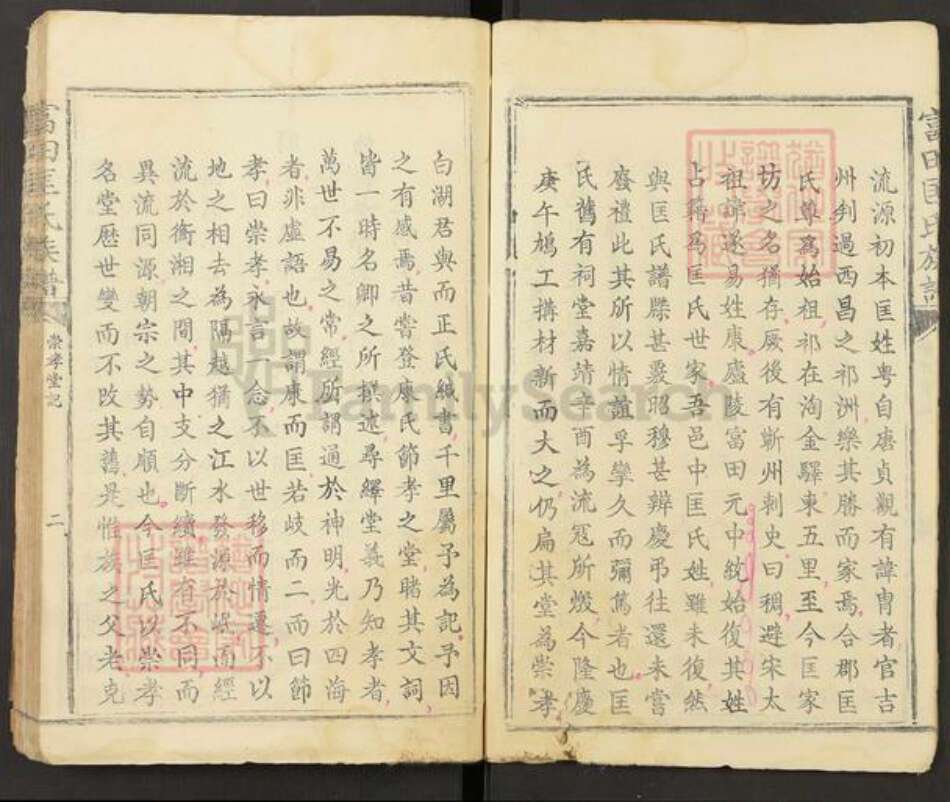 富田匡氏族譜
流源初本匡姓粤自唐貞觀有諱胄者官吉
州判過西昌之祁洲樂其勝而家焉合郡匡
氏尊爲始祖祁在淘金驛東五里至今匡家
坊之名猶存厥後有蘄州刺史曰稠避宋太
祖諱遂易姓康廬陵富田元中統始復其姓
占籍爲匡氏世家吾邑中匡氏姓雖未復然
與匡氏譜牒甚覈昭穆甚辨慶弔往還未嘗
廢禮此其所以情誼孚孿久而彌篤者也匡
氏舊有祠堂嘉靖辛酉為流冦所燬今隆慶
庚午鳩工搆材新而大之仍扁其堂為崇孝
白湖君與而正氏緘書千里屬予為記予因
之有感焉昔嘗登康氏節孝之堂睹其文詞
皆一時名卿之所撰述尋繹堂義乃知孝者
萬世不易之常經所謂通於神明光於四海
者非虛語也故謂康而匡若岐而二而曰節
孝曰崇孝永言一念不以世移而情遷不以
地之相去為隔越猶之江水發源於岷而經
流於衡湘之間其中支分斷續雖有不同而
異流同源朝宗之勢自順也今匡氏以崇孝
名堂歷世變而不改其舊是惟族之父老克
富田匡氏族譜
崇孝堂記
二
FamilySearch